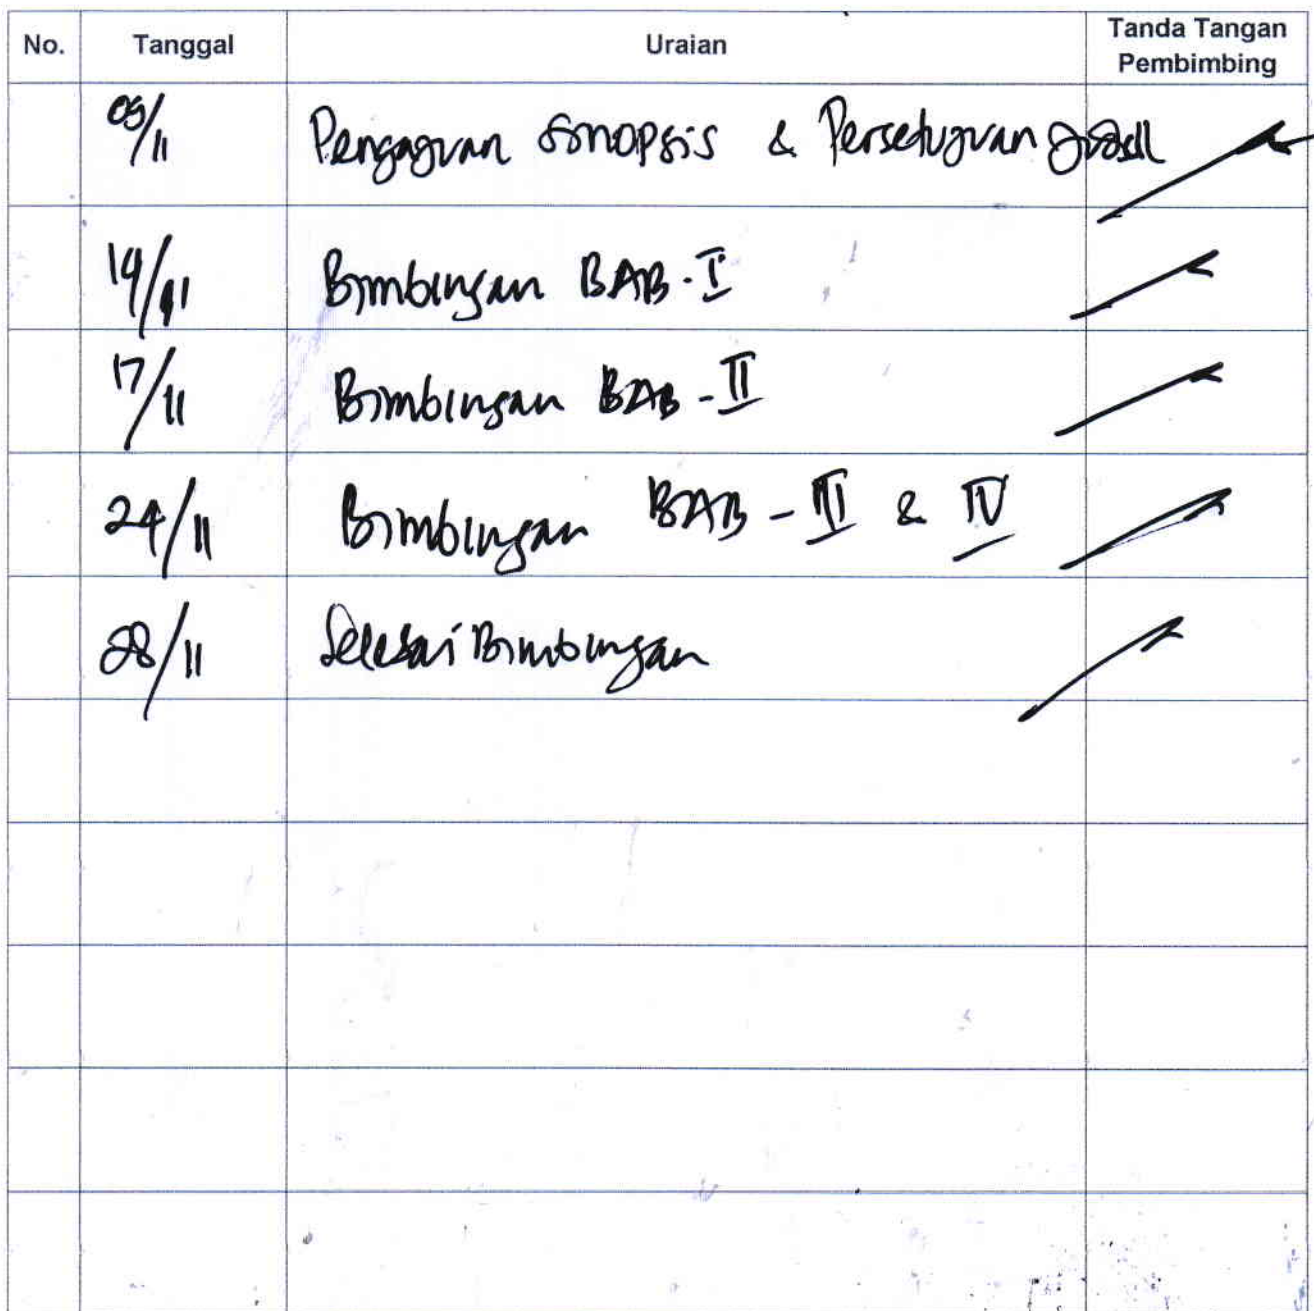 No. Tanggal Uraian Tanda Tangan Pembimbing
05/11 Pengajuan Sinopsis & Persetujuan Judul
14/11 Bimbingan BAB-I
17/11 Bimbingan BAB-II
24/11 Bimbingan BAB-III & IV
28/11 Selesai Bimbingan